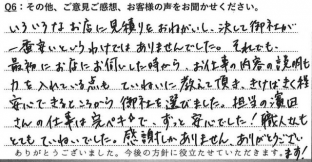 Q6：その他、ご意見ご感想、お客様の声をお聞かせください。
いろいろなお店に見積りをおねがいし、決して御社が
一番安いというわけではありませんでした。それでも
最初にお店にお伺いした時から お仕事の内容の説明も
力を入れている点も ていねいに教えて頂き、きけばきく程
安心できるところから御社を選びました。担当の濱田
さんの仕事は完ペキで、ずっと安心でした！職人さんも
とてもていねいでした。感謝しかありません。ありがとうござい
ます！
ありがとうございました。今後の方針に役立たせていただきます。